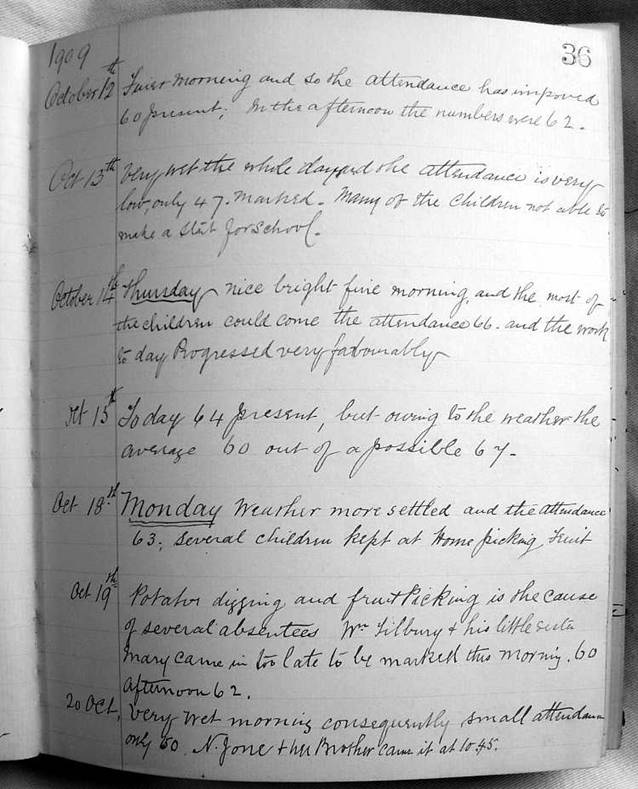 36
1909
October 12th Finer morning and so the attendance has improved
60 present; In the afternoon the numbers were 62.
Oct 13th Very wet the whole day and the attendance is very
low, only 47 marked. Many of the children not able to
make a start for school.
October 14th Thursday nice bright fine morning and the most of
the children could come the attendance 66. and the work
to day Progressed very favourably
Oct 15th Today 64 present, but owing to the weather the
average 60 out of a possible 67.
Oct 18th Monday Weather more settled and the attendance
63; several children kept at Home picking Fruit
Oct 19th Potatoe digging and fruit Picking is the cause
of several absentees Wm Tilbury & his little sister
Mary came in too late to be marked this morning. 60
afternoon 62.
20 Oct. Very wet morning consequently small attendance
only 50 N. Jone & her Brother came it at 10.45.